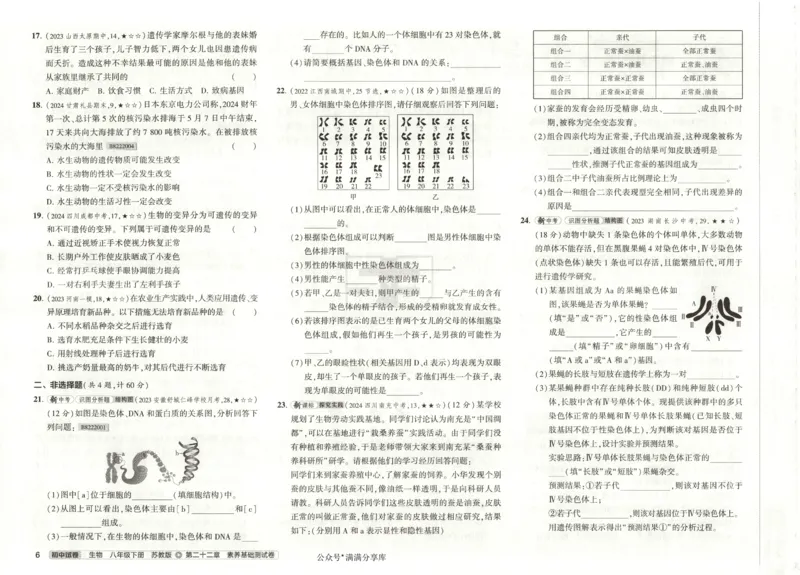 17.(2023山西太原期中,14,★☆☆)遗传学家摩尔根与他的表妹婚
后生育了三个孩子,儿子智力低下,两个女儿也因患遗传病
而夭折。造成这种不幸结果最可能的原因是他和他的表妹
从家族里继承了共同的 ( )
A.家庭财产 B.饮食习惯 C.生活方式 D.致病基因
18.(2024甘肃礼县期末,9,★☆☆)日本东京电力公司称,2024财年
第一次、总计第5次的核污染水排海于5月7日中午结束,
17天来共向大海排放了约7 800吨核污染水。在被排放核
污染水的大海里 S8222004 ( )
A.水生动物的遗传物质可能发生改变
B.水生动物的性状一定会发生改变
C.水生动物一定不受核污染水的影响
D.水生动物的生活习性一定会改变
19.(2024四川成都中考,17,★☆☆)生物的变异分为可遗传的变异
和不可遗传的变异。下列属于可遗传变异的是 ( )
A.通过近视矫正手术使视力恢复正常
B.长期户外工作使皮肤晒成了小麦色
C.经常打乒乓球使手眼协调能力提高
D.一对右利手夫妻生出了左利手孩子
20.(2023河南一模,18,★☆☆)在农业生产实践中,人类应用遗传、变
异原理培育新品种。以下措施无法培育新品种的是 ( )
A.不同水稻品种杂交之后进行选育
B.选育水肥充足条件下生长健壮的小麦
C.用射线处理种子后进行选育
D.挑选产奶量最高的奶牛,对其后代进行不断选育
二、非选择题(共4题,计60分)
21.新中考 识图分析题 结构图(2023安徽舒城仁峰学校月考,28,★☆☆)
(12分)如图是染色体、DNA和蛋白质的关系图,分析回答下
列问题: S8222001
(1)图中[a]位于细胞的________(填细胞结构)中。
(2)从图上可以看出,染色体主要由[b]________和[c]
________组成。
(3)一般情况下,在生物的体细胞中,染色体和DNA是____
____存在的。比如人的一个体细胞中有23对染色体,就
有________个DNA分子。
(4)请简要概括基因、染色体和DNA的关系:________
________。
22.(2022江西南城期中,25节选,★☆☆)(18分)如图是整理后的
男、女体细胞中染色体排序图,请仔细观察后回答下列问题:
1 2 3 4 5
6 7 8 9 10
11 12 13 14 15
16 17 18
19 20 21 22
23
甲
1 2 3 4 5
6 7 8 9 10
11 12 13 14 15
16 17 18
19 20 21 22 23
乙
(1)从图中可以看出,在正常人的体细胞中,染色体是____
________的。
(2)根据染色体组成可以判断________图是男性体细胞中染
色体排序图。
(3)男性的体细胞中性染色体组成为________。
(4)男性能产生________种类型的精子。
(5)若甲、乙是一对夫妇,则甲产生的________与乙产生的含有
________染色体的精子结合,形成的受精卵就发育成女性。
(6)若该排序图表示的是已生育两个女儿的父母的体细胞染
色体组成,假如他们再生一个孩子,是男孩的可能性为
________。
(7)甲、乙的眼睑性状(相关基因用D、d表示)均表现为双眼
皮,却生了一个单眼皮的孩子。若他们再生一个孩子,表
现为单眼皮的可能性是________。
23.新课标 探究实践(2024四川南充中考,13,★★☆)(12分)某学校
规划了生物劳动实践基地。同学们讨论认为南充是“中国绸
都”,可以在基地进行“栽桑养蚕”实践活动。由于同学们没
有种植和养殖经验,于是老师带领大家来到南充某“桑蚕种
养科研所”研学。请根据他们的学习经历回答问题:
同学们来到家蚕养殖中心,了解家蚕的饲养。小华发现个别
蚕的皮肤与其他蚕不同,像油纸一样透明,于是向科研人员
请教。科研人员告诉同学们这些皮肤透明的蚕是油蚕,皮肤
正常的叫做正常蚕,他们对家蚕的皮肤做过相应研究,结果
如下:(分别用A和a表示显性和隐性基因)
组合 亲代 子代
组合一 正常蚕×油蚕 全部正常蚕
组合二 正常蚕×油蚕 正常蚕、油蚕
组合三 正常蚕×正常蚕 全部正常蚕
组合四 正常蚕×正常蚕 正常蚕、油蚕
(1)家蚕的发育会经历受精卵、幼虫、________、成虫四个时
期,被称为完全变态发育。
(2)组合四亲代均为正常蚕,子代出现油蚕,这种现象被称为
________,通过该组合的结果可知皮肤透明是____
________性状,推测子代正常蚕的基因组成为________。
(3)组合二中子代油蚕所占比例理论上为________。
(4)组合一和组合二亲代表现型完全相同,子代出现差异的
原因是________。
24.新中考 识图分析题 结构图(2023湖南长沙中考,29,★★☆)
(18分)动物中缺失1条染色体的个体叫单体,大多数动物
的单体不能存活,但在黑腹果蝇4对染色体中,Ⅳ号染色体
(点状染色体)缺失1条也可以存活,且能繁殖后代,可用于
进行遗传学研究。
(1)某基因组成为Aa的果蝇染色体如
图,该果蝇是否为单体果蝇?________
(填“是”或“否”),它的性染色体组
成是________,它产生的________
________(填“精子”或“卵细胞”)中含有________
(填“A或a”或“A和a”)基因。
Ⅳ
A
a
Ⅱ
Ⅲ
X Y
(2)果蝇的长肢与短肢在遗传学上称为一对________。
(3)某果蝇种群中存在纯种长肢(DD)和纯种短肢(dd)个
体,长肢中含有Ⅳ号单体个体。现提供该种群中的多只
染色体正常的果蝇和Ⅳ号单体长肢果蝇(已知长肢、短
肢基因不位于性染色体上),为判断该对基因是否位于
Ⅳ号染色体上,设计实验并预测结果。
实验思路:Ⅳ号单体长肢果蝇与染色体正常的________
____(填“长肢”或“短肢”)果蝇杂交。
预测结果:①若子代________,则该对基因不位于
Ⅳ号染色体上;
②若子代________,则该对基因位于Ⅳ号染色体上。
用遗传图解表示得出“预测结果①”的分析过程。
6 初中试卷 生物 八年级下册 苏教版 第二十二章 素养基础测试卷
公众号*满满分享库